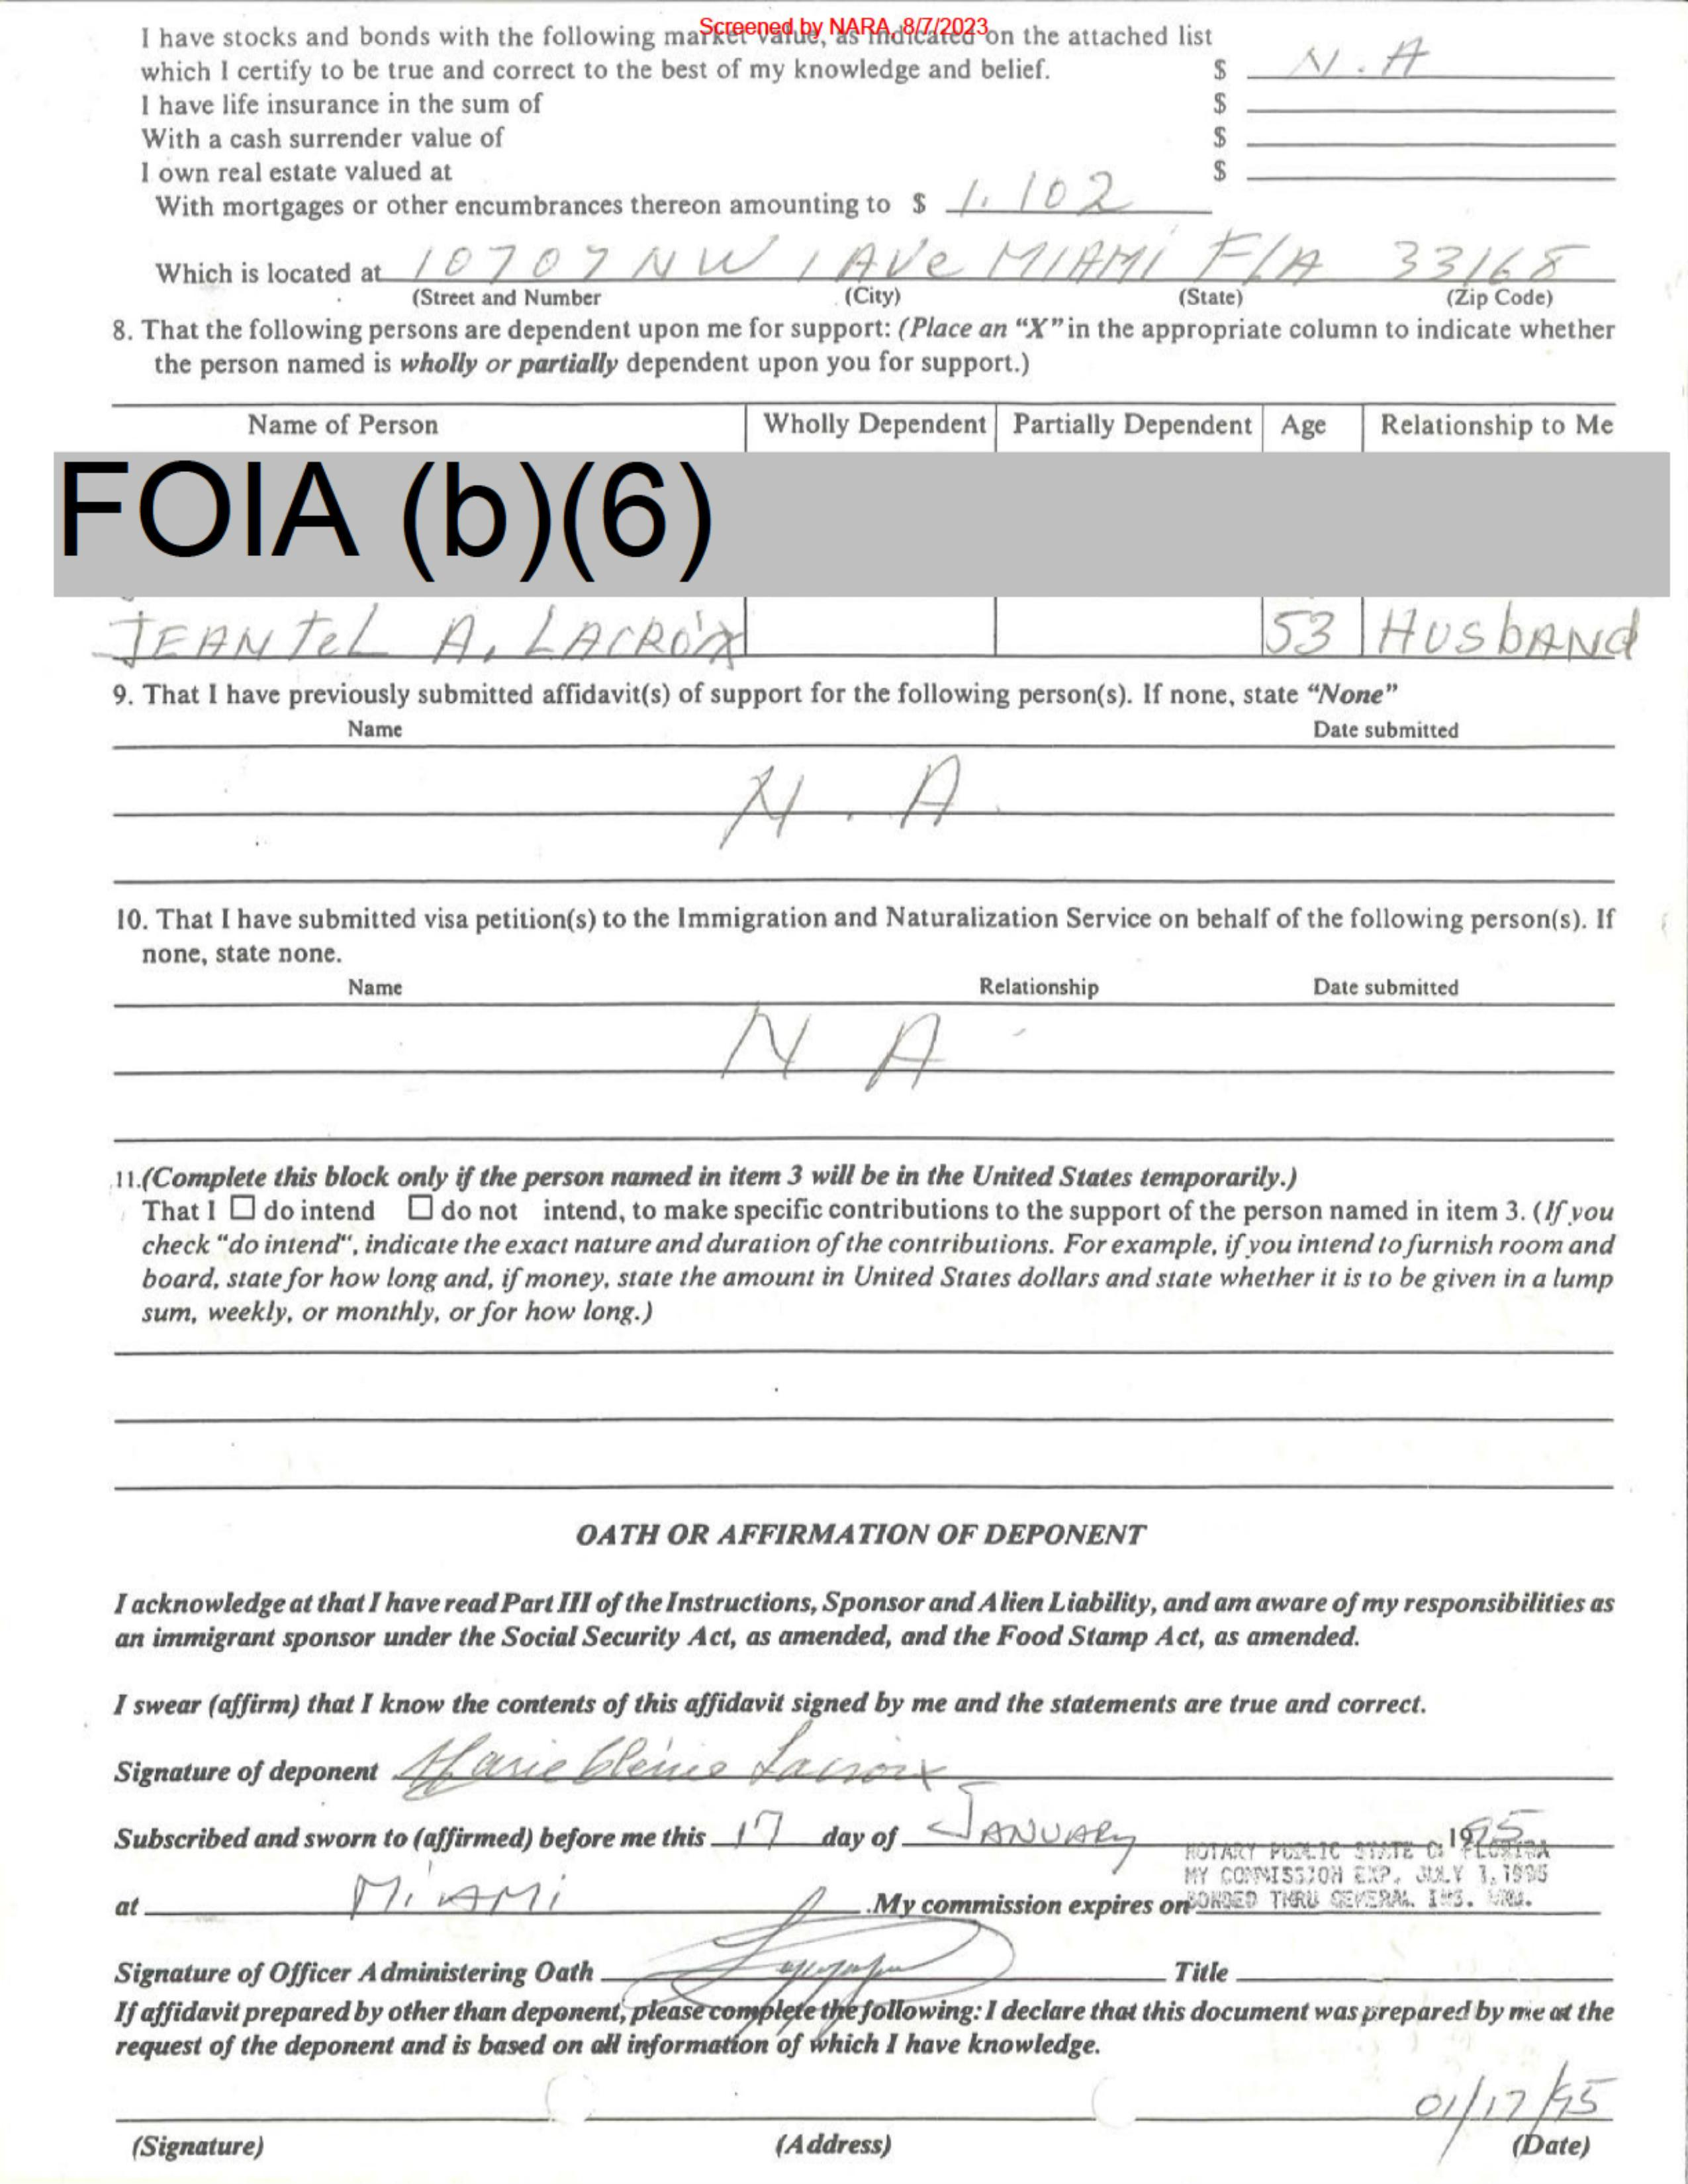 Screened by NARA, 8/7/2023
I have stocks and bonds with the following market value, as indicated on the attached list
which I certify to be true and correct to the best of my knowledge and belief. $ N.A
I have life insurance in the sum of $
With a cash surrender value of $
I own real estate valued at $
With mortgages or other encumbrances thereon amounting to $ 1.102
Which is located at 10707 NW 1 AVe MIAMI FlA 33168
(Street and Number (City) (State) (Zip Code)
8. That the following persons are dependent upon me for support: (Place an “X” in the appropriate column to indicate whether
the person named is wholly or partially dependent upon you for support.)
Name of Person Wholly Dependent Partially Dependent Age Relationship to Me
FOIA (b)(6)
JEANTeL A. LACROix 53 HUSbANd
9. That I have previously submitted affidavit(s) of support for the following person(s). If none, state “None”
Name Date submitted
N.A
10. That I have submitted visa petition(s) to the Immigration and Naturalization Service on behalf of the following person(s). If
none, state none.
Name Relationship Date submitted
N A
11.(Complete this block only if the person named in item 3 will be in the United States temporarily.)
That I ☐ do intend ☐ do not intend, to make specific contributions to the support of the person named in item 3. (If you
check “do intend“, indicate the exact nature and duration of the contributions. For example, if you intend to furnish room and
board, state for how long and, if money, state the amount in United States dollars and state whether it is to be given in a lump
sum, weekly, or monthly, or for how long.)
OATH OR AFFIRMATION OF DEPONENT
I acknowledge at that I have read Part III of the Instructions, Sponsor and Alien Liability, and am aware of my responsibilities as
an immigrant sponsor under the Social Security Act, as amended, and the Food Stamp Act, as amended.
I swear (affirm) that I know the contents of this affidavit signed by me and the statements are true and correct.
Signature of deponent Marie Lacroix
Subscribed and sworn to (affirmed) before me this 17 day of JANUARy 1995
NOTARY PUBLIC STATE OF FLORIDA
MY COMMISSION EXP. JULY 1, 1995
at MiAMi .My commission expires on BONDED THRU GENERAL INS. UND.
Signature of Officer Administering Oath Title
If affidavit prepared by other than deponent, please complete the following: I declare that this document was prepared by me at the
request of the deponent and is based on all information of which I have knowledge.
01/17/95
(Signature) (Address) (Date)